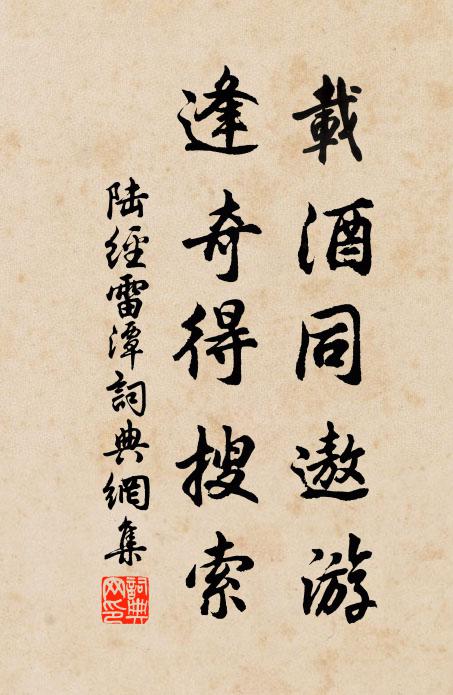 載酒同遨游
逢奇得搜索
陆經雷潭詞典網集
詞典网印